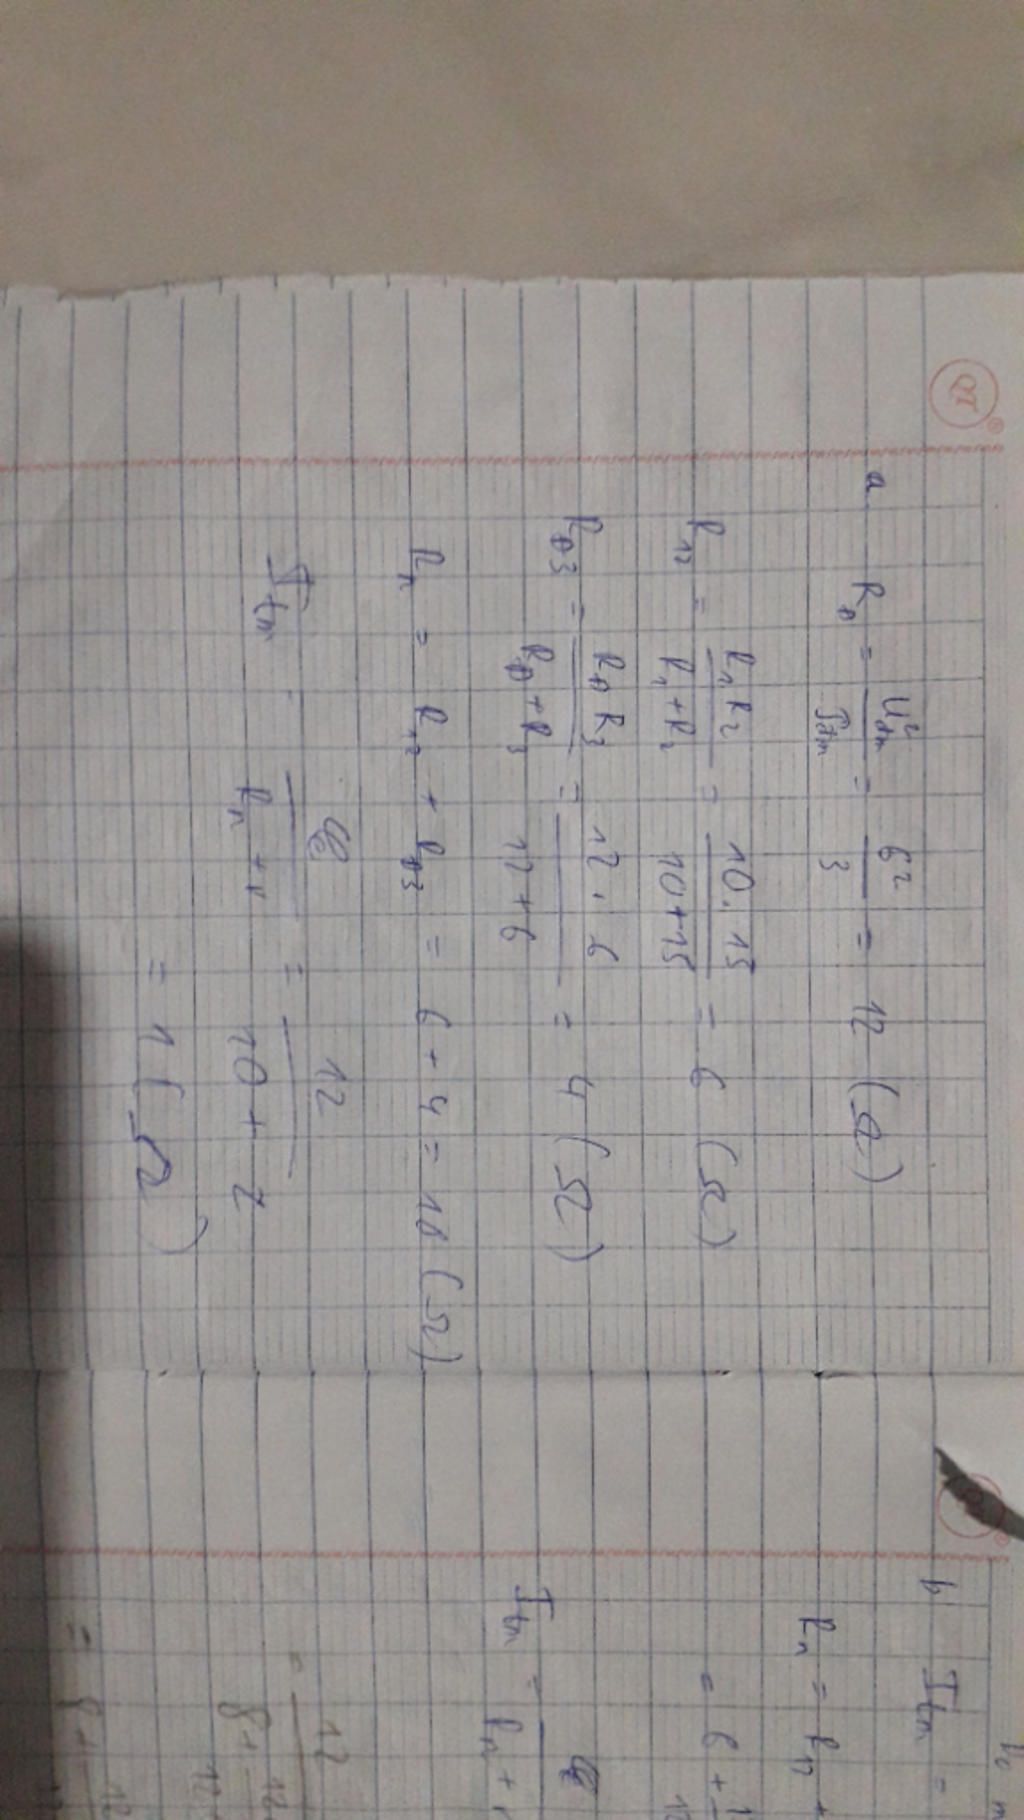 a R_Đ = U²đm / Iđm = 6² / 3 = 12 (Ω)
R₁₂ = R₁R₂ / R₁+R₂ = 10.15 / 10+15 = 6 (Ω)
R_Đ3 = R_Đ R₃ / R_Đ+R₃ = 12.6 / 12+6 = 4 (Ω)
Rₙ = R₁₂ + R_Đ3 = 6 + 4 = 10 (Ω)
Itm = / Rₙ + r = 12 / 10 + 2
= 1 (Ω)
b Itm =
Rₙ = R₁₂ +
= 6 +
Itm = / Rₙ +
= 12 / 8 +
= 8 +